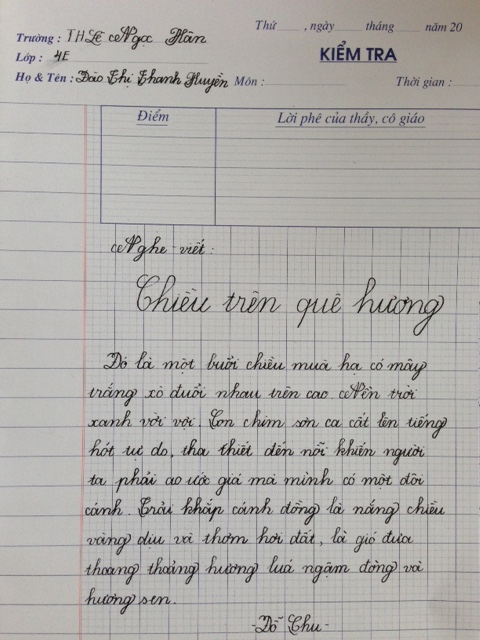 Thứ , ngày tháng năm 20
Trường : TH Lê Ngọc Hân
KIỂM TRA
Lớp : 4E
Họ & Tên : Đào Thị Thanh Huyền Môn : Thời gian :
Điểm Lời phê của thầy, cô giáo
Nghe - viết :
Chiều trên quê hương
Đó là một buổi chiều mùa hạ có mây
trắng xô đuổi nhau trên cao. Nền trời
xanh vời vợi. Con chim sơn ca cất lên tiếng
hót tự do, tha thiết đến nỗi khiến người
ta phải ao ước giá mà mình có một đôi
cánh. Trải khắp cánh đồng là nắng chiều
vàng dịu và thơm hơi đất, là gió đưa
thoang thoảng hương lúa ngậm đòng và
hương sen.
- Đỗ Chu -